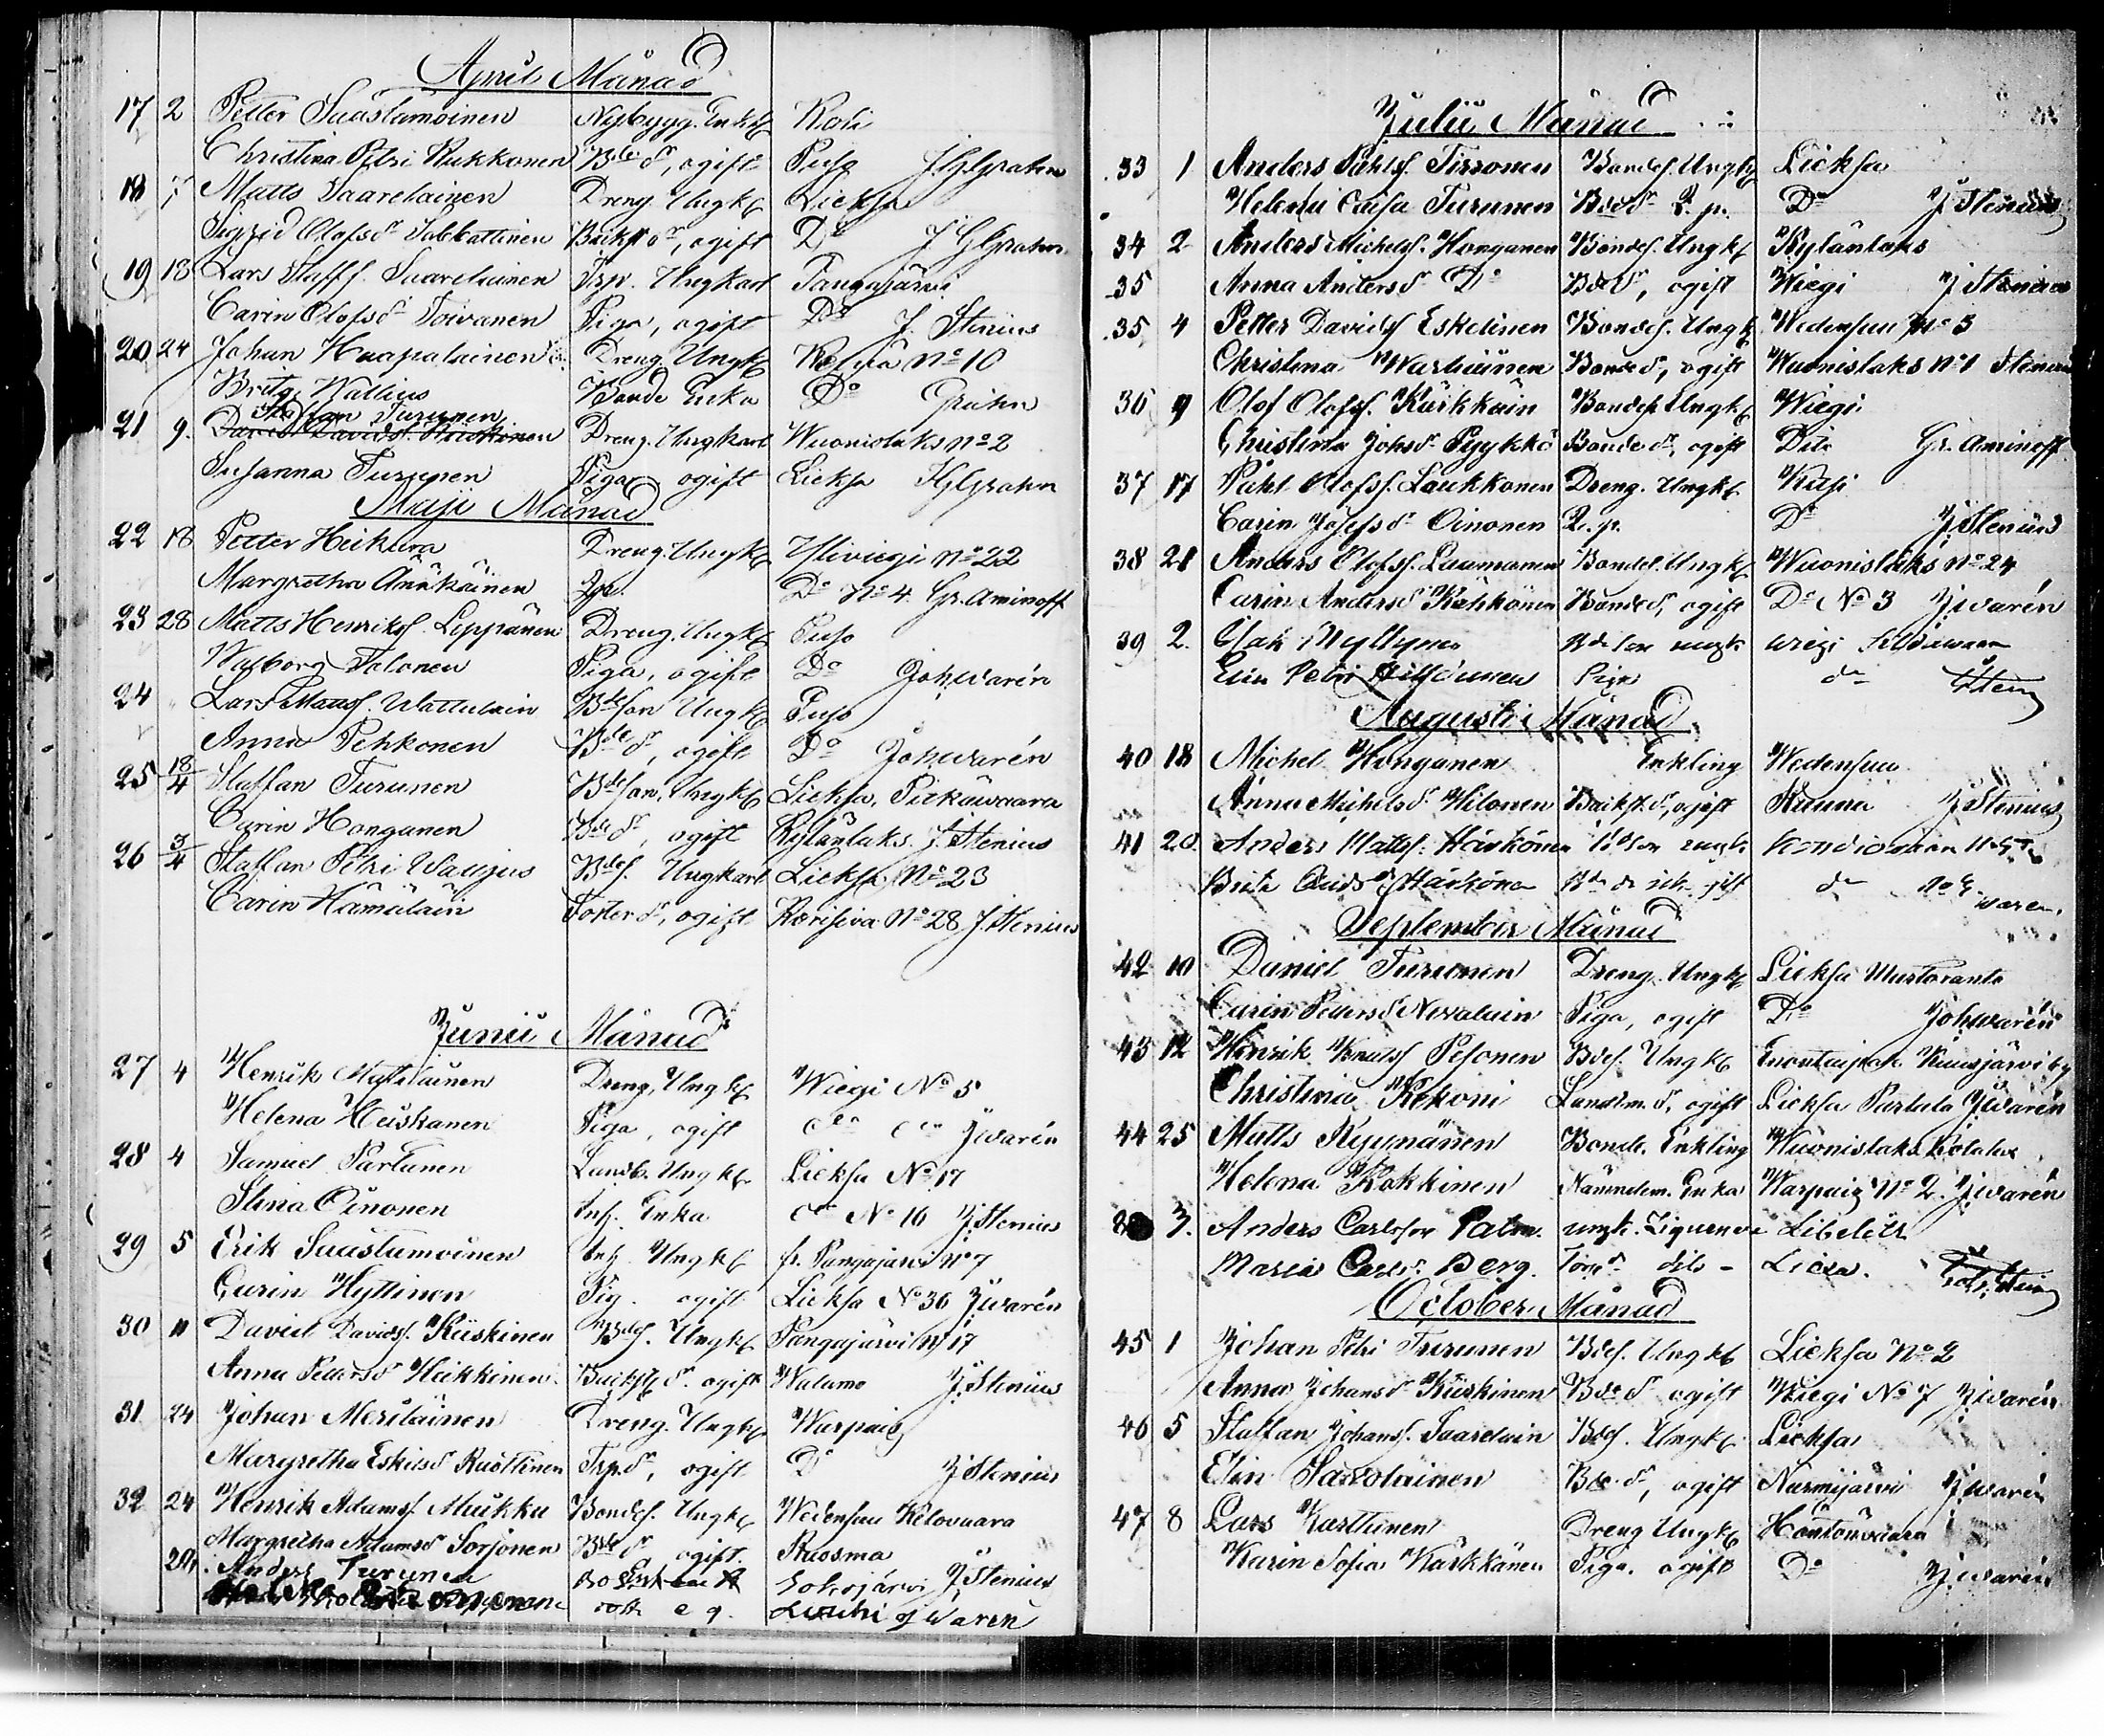 April Månad
17 2 Petter Saastamoinen Nybygg. Enkl Koli
Christina Petri Kukkonen Bde dr, ogift Puso J.H. Grahn
18 7 Matts Saarelainen Dreng Ungkl Lieksa
Sigrid Olofsdr Dreng, ogift Do J H Grahn
19 18 Lars Staffs. Saarelainen Trp. Ungkarl Pangajärvi
Carin Olofsdr Toivanen Piga, ogift Do J. Stenius
20 24 Johan Haapalainen Dreng Ungkl No 10
Brita Wallius Bonde Enka Do Grahn
Staffan Turunen
21 9. Dreng. Ungkarl Wuonislaks No 2
Susanna Turunen Piga ogift Lieksa H Grahn
Maji Månad
22 18 Petter Heikura Dreng. Ungkl Yliviegi No 22
Margretha Ännikäinen Do No 4 Gr. Aminoff
23 28 Matts Henrikss. Leppänen Dreng. Ungkl Puso
Walborg Tolonen Piga, ogift Do Joh. warén
24 " Lars Matts. Wattulain Bdeson Ungkl Puso
Anna Pehkonen Bde dr, ogift Do Joh. warén
25 18/4 Staffan Turunen Bdeson, Ungkl Lieksa, Pitkäwaara
Carin Honganen Bde dr, ogift Kylänlaks. J. Stenius
26 3/4 Staffan Petri Waljus Bdes. Ungkarl Lieksa No 23
Carin Hämäläin Torfer dr, ogift Korisiva No 28 J. Stenius
Junii Månad
27 4 Henrik Matilainen Dreng, Ungkl Wiegi No 5
Helena Heiskanen Piga, ogift do do J warén
28 4 Samuel Partanen Landb. Ungkl Lieksa No 17
Stina Oinonen Inh. Enka do No 16 J Stenius
29 5 Erik Saastamoinen Inh. Ungkl fr. Pangajärvi No 7
Carin Hyttinen Pig. ogift Lieksa No 36 J warén
30 11 David Davids. Kiiskinen Bdes. Ungkl Pangajärvi No 17
Anna Petersdr Heikkinen Backstg dr. ogift Walamo J. Stenius
31 24 Johan Meriläinen Dreng. Ungkl Warpaio
Margretha Eskilsdr Ruottinen Trp.dr, ogift Do J Stenius
32 24 Henrik Adamss. Mukka Bondes. Ungkl Wedensuu Kelovaara
Margretha Adamsdr Sorjonen Bde dr ogift. Ruosma
24 Anders Turunen J Stenius
o g. J Waren
Julii Månad
33 1 Anders Påhls. Tirronen Bondes. Ungkl Lieksa
Helena Caisa Turunen Bde dr Q. p. Do J Stenius
34 2 Anders Michels. Honganen Bondes. Ungkl Kylänlaks
35 Anna Andersdr Do Bde dr, ogift Wiegi J Stenius
35 4 Petter Davids Eskelinen Bondes. Ungkl Wedensuu No 3
Christina Martiainen Bonde dr, ogift Wuonislaks No 1 Stenius
36 9 Olof Olofss. Kärkkäin Bondes Ungkl Wiegi
Christina Johsdr Pyykkö Bonde dr, ogift Dito Gr. Aminoff
37 17 Påhl Olofss. Laukkonen Dreng. Ungkl
Carin Josefsdr Oinonen Q. p. Do J Stenius
38 21 Anders Olofss. Laamanen Bondes. Ungkl Wuonislaks No 24
Carin Andersdr Kähkönen Bonde dr, ogift Do No 3 J warén
39 2. Isak Myllynen Bdeson ungk wiegi
Elin Petri Piga do Sten
Augusti Månad
40 18 Michel Honganen Enkling Wedensuu
Anna Michelsdr Hilonen Backst dr, ogift Kunna J Stenius
41 20. Anders Matts. Härkönen ungk.
Brita Härkönen do waren.
September Månad
42 10 Daniel Turunen Dreng. Ungkl Lieksa Mustaranta
Carin Petersdr Nevalain Piga, ogift Do Joh warén
43 12 Henrik Knuts Pesonen Bdes. Ungkl Enontaipale Kuusjärvi by
Christina Kekoni Landtm. dr, ogift Lieksa Partala J warén
44 25 Matts Kyynänen Bonde Enkling Wuonislaks
Helena Kokkinen Nämndem. Enka Warpaio No 2. J warén
3. Anders Carlsson Palm. ungk. Libelits
Maria Carlsdr Berg. dito - Liexa.
October Månad
45 1 Johan Petri Turunen Bdes. Ungkl Lieksa No 2
Anna Johansdr Kiiskinen Bde dr ogift Wiegi No 7 J warén
46 5 Staffan Johans. Saarelain Bdes. Ungkl. Lieksa
Elin Sarolainen Bde dr, ogift Nurmijärvi J warén
47 8 Lars Karttunen Dreng Ungkl Höntönvaara
Karin Sofia Kärkkänen Piga. ogift Do J warén